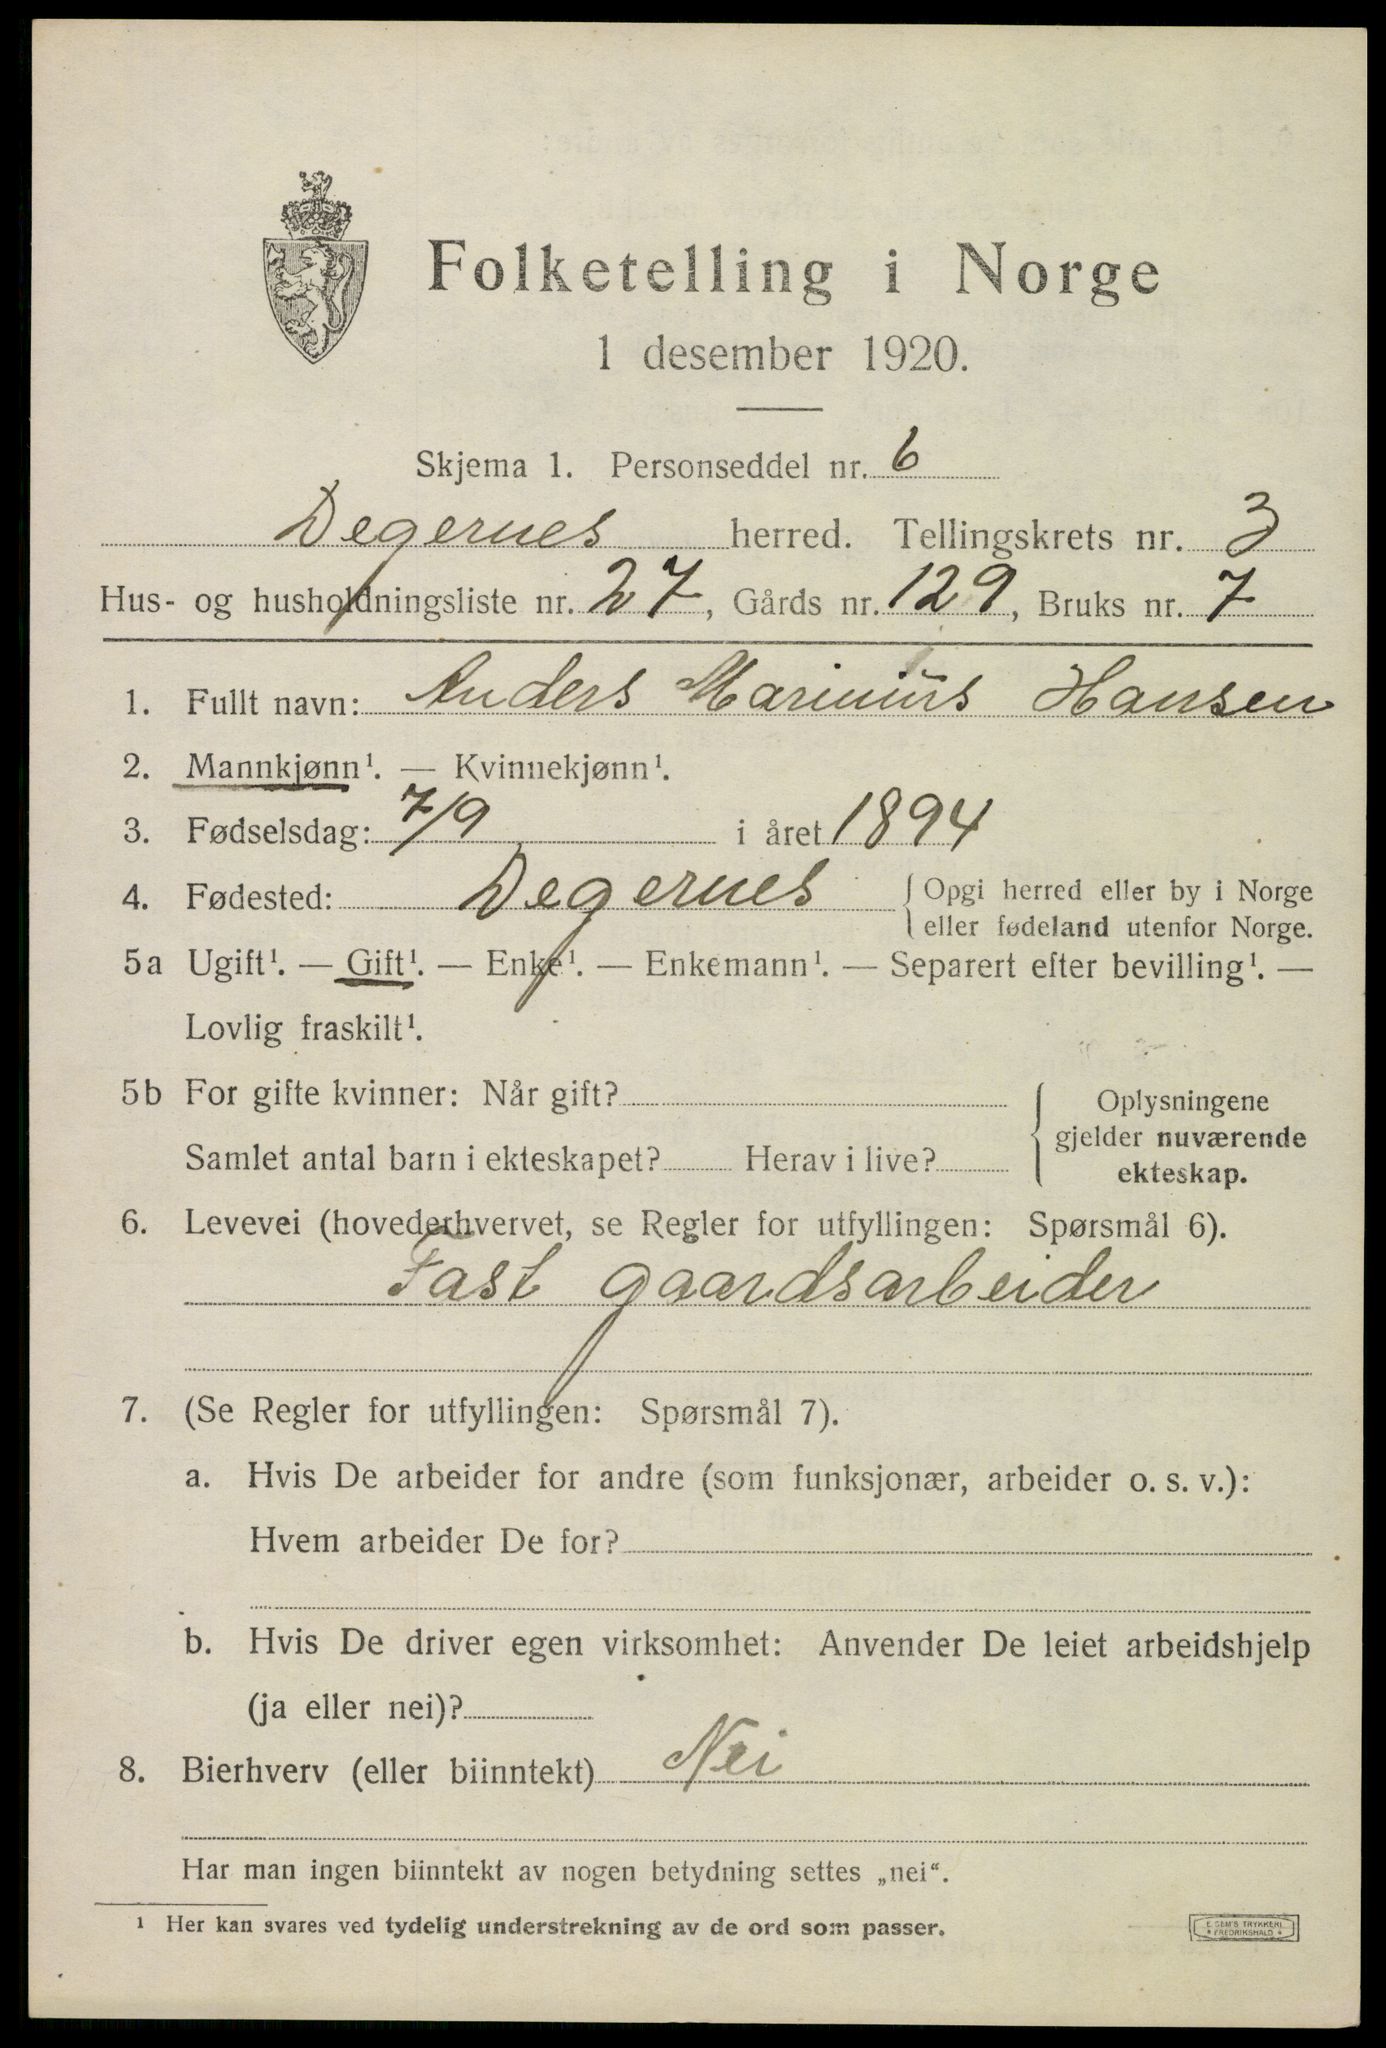 Folketelling i Norge
1 desember 1920.
Skjema 1. Personseddel nr. 6
Degernes herred. Tellingskrets nr. 3
Hus- og husholdningsliste nr. 27, Gårds nr. 129, Bruks nr. 7
1. Fullt navn: Anders Marinius Hansen
2. Mannkjønn¹. — Kvinnekjønn¹.
3. Fødselsdag: 7/9 i året 1894
4. Fødested: Degernes { Opgi herred eller by i Norge
eller fødeland utenfor Norge.
5a Ugift¹. — Gift¹. — Enke¹. — Enkemann¹. — Separert efter bevilling¹. —
Lovlig fraskilt¹.
5b For gifte kvinner: Når gift?
Samlet antal barn i ekteskapet? Herav i live?
{ Oplysningene
gjelder nuværende
ekteskap.
6. Levevei (hovederhvervet, se Regler for utfyllingen: Spørsmål 6).
Fast gaardsarbeider
7. (Se Regler for utfyllingen: Spørsmål 7).
a. Hvis De arbeider for andre (som funksjonær, arbeider o. s. v.):
Hvem arbeider De for?
b. Hvis De driver egen virksomhet: Anvender De leiet arbeidshjelp
(ja eller nei)?
8. Bierhverv (eller biinntekt) Nei
Har man ingen biinntekt av nogen betydning settes „nei“.
¹ Her kan svares ved tydelig understrekning av de ord som passer.
E. SEM'S TRYKKERI
* FREDRIKSHALD *